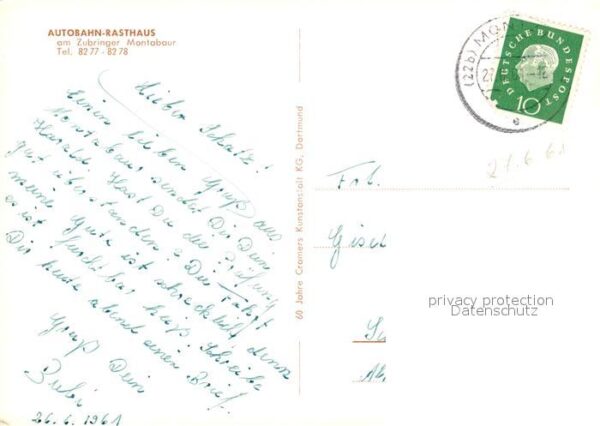 AUTOBAHN-RASTHAUS
am Zubringer Montabaur
Tel. 82 77 - 82 78
Lieber Schatz!
Einen lieben Gruß aus
Montabaur sendet Dir Dein
Harald. Hast Du die Prüfung
gut überstanden? Die Fahrt
meine Gute ist schrecklich denn
es ist furchtbar heiß. Schreibe
Dir heute abend einen Brief
Gruß Dein
26.6.1961
60 Jahre Cramers Kunstanstalt KG, Dortmund
(22b) MON
DEUTSCHE BUNDESPOST
10
e
27.6.61
Frl.
Gisel
privacy protection
Datenschutz